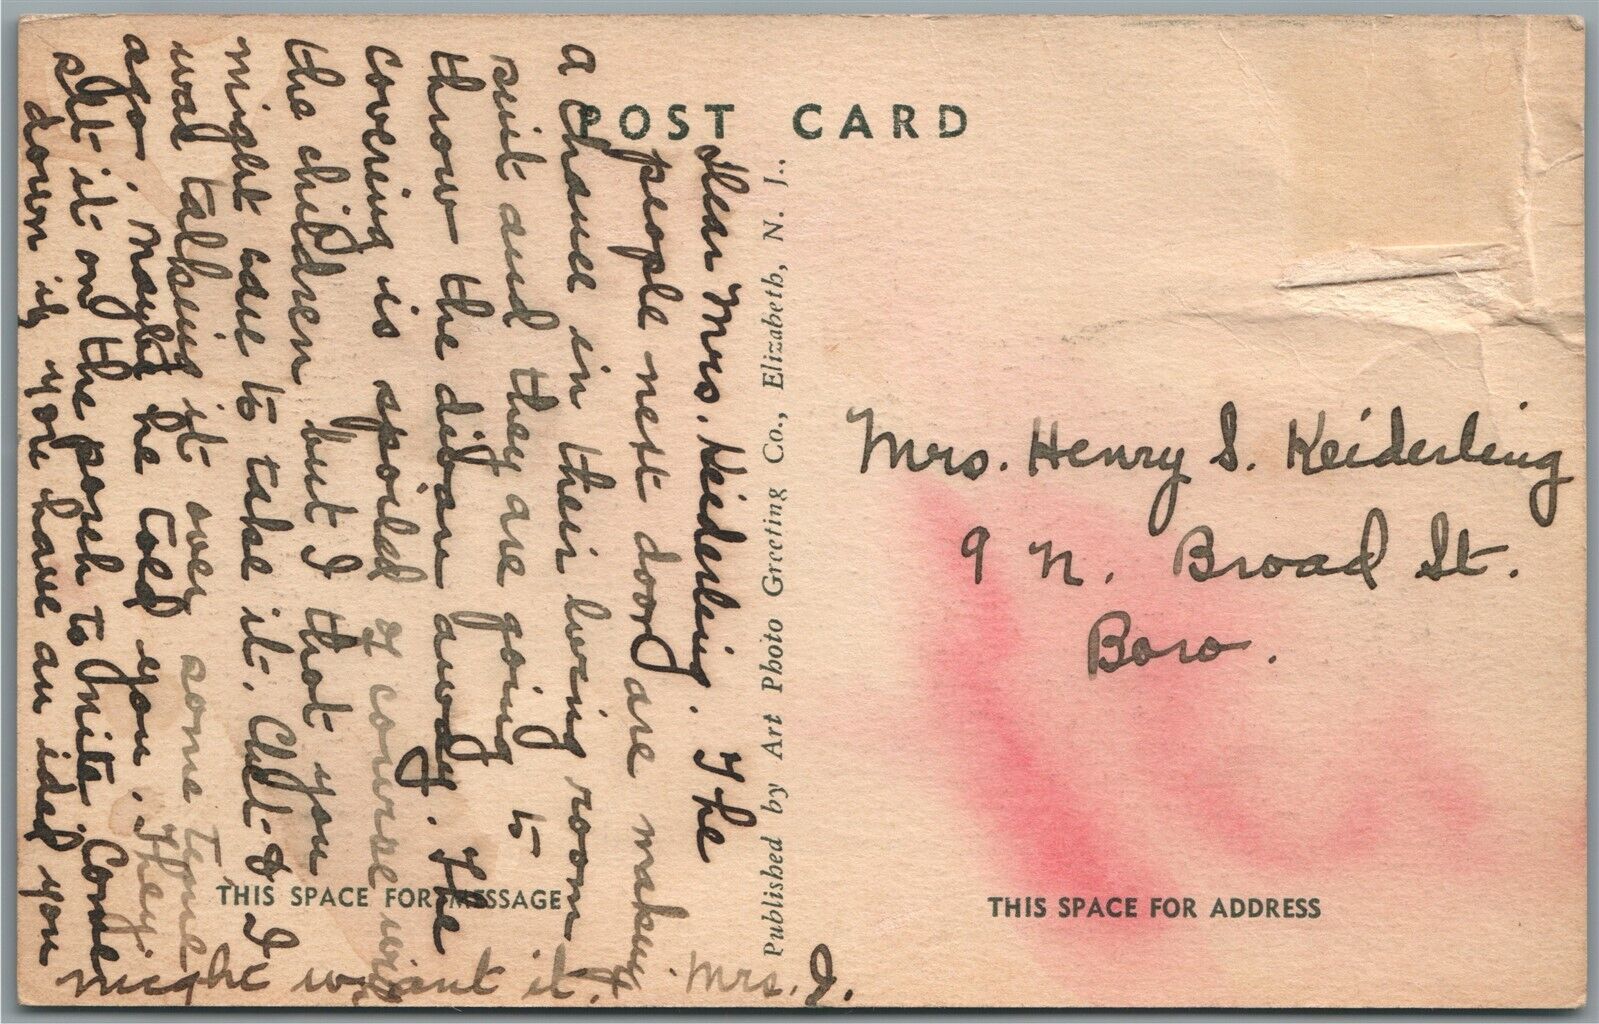 POST CARD
Dear Mrs. Keiderling. The
people next door are making
a change in their living room
suit and they are going to
throw the diban away. The
covering is spoiled of course
the children but I that you
might care to take it. Chet & I
was talking it over some time
ago. Maybe he told you. They
set it on the porch to nite Come
down if you have an idea you
might want it. Mrs. J.
Published by Art Photo Greeting Co., Elizabeth, N. J.
Mrs. Henry S. Keiderling
9 N. Broad St.
Boro.
THIS SPACE FOR MESSAGE
THIS SPACE FOR ADDRESS